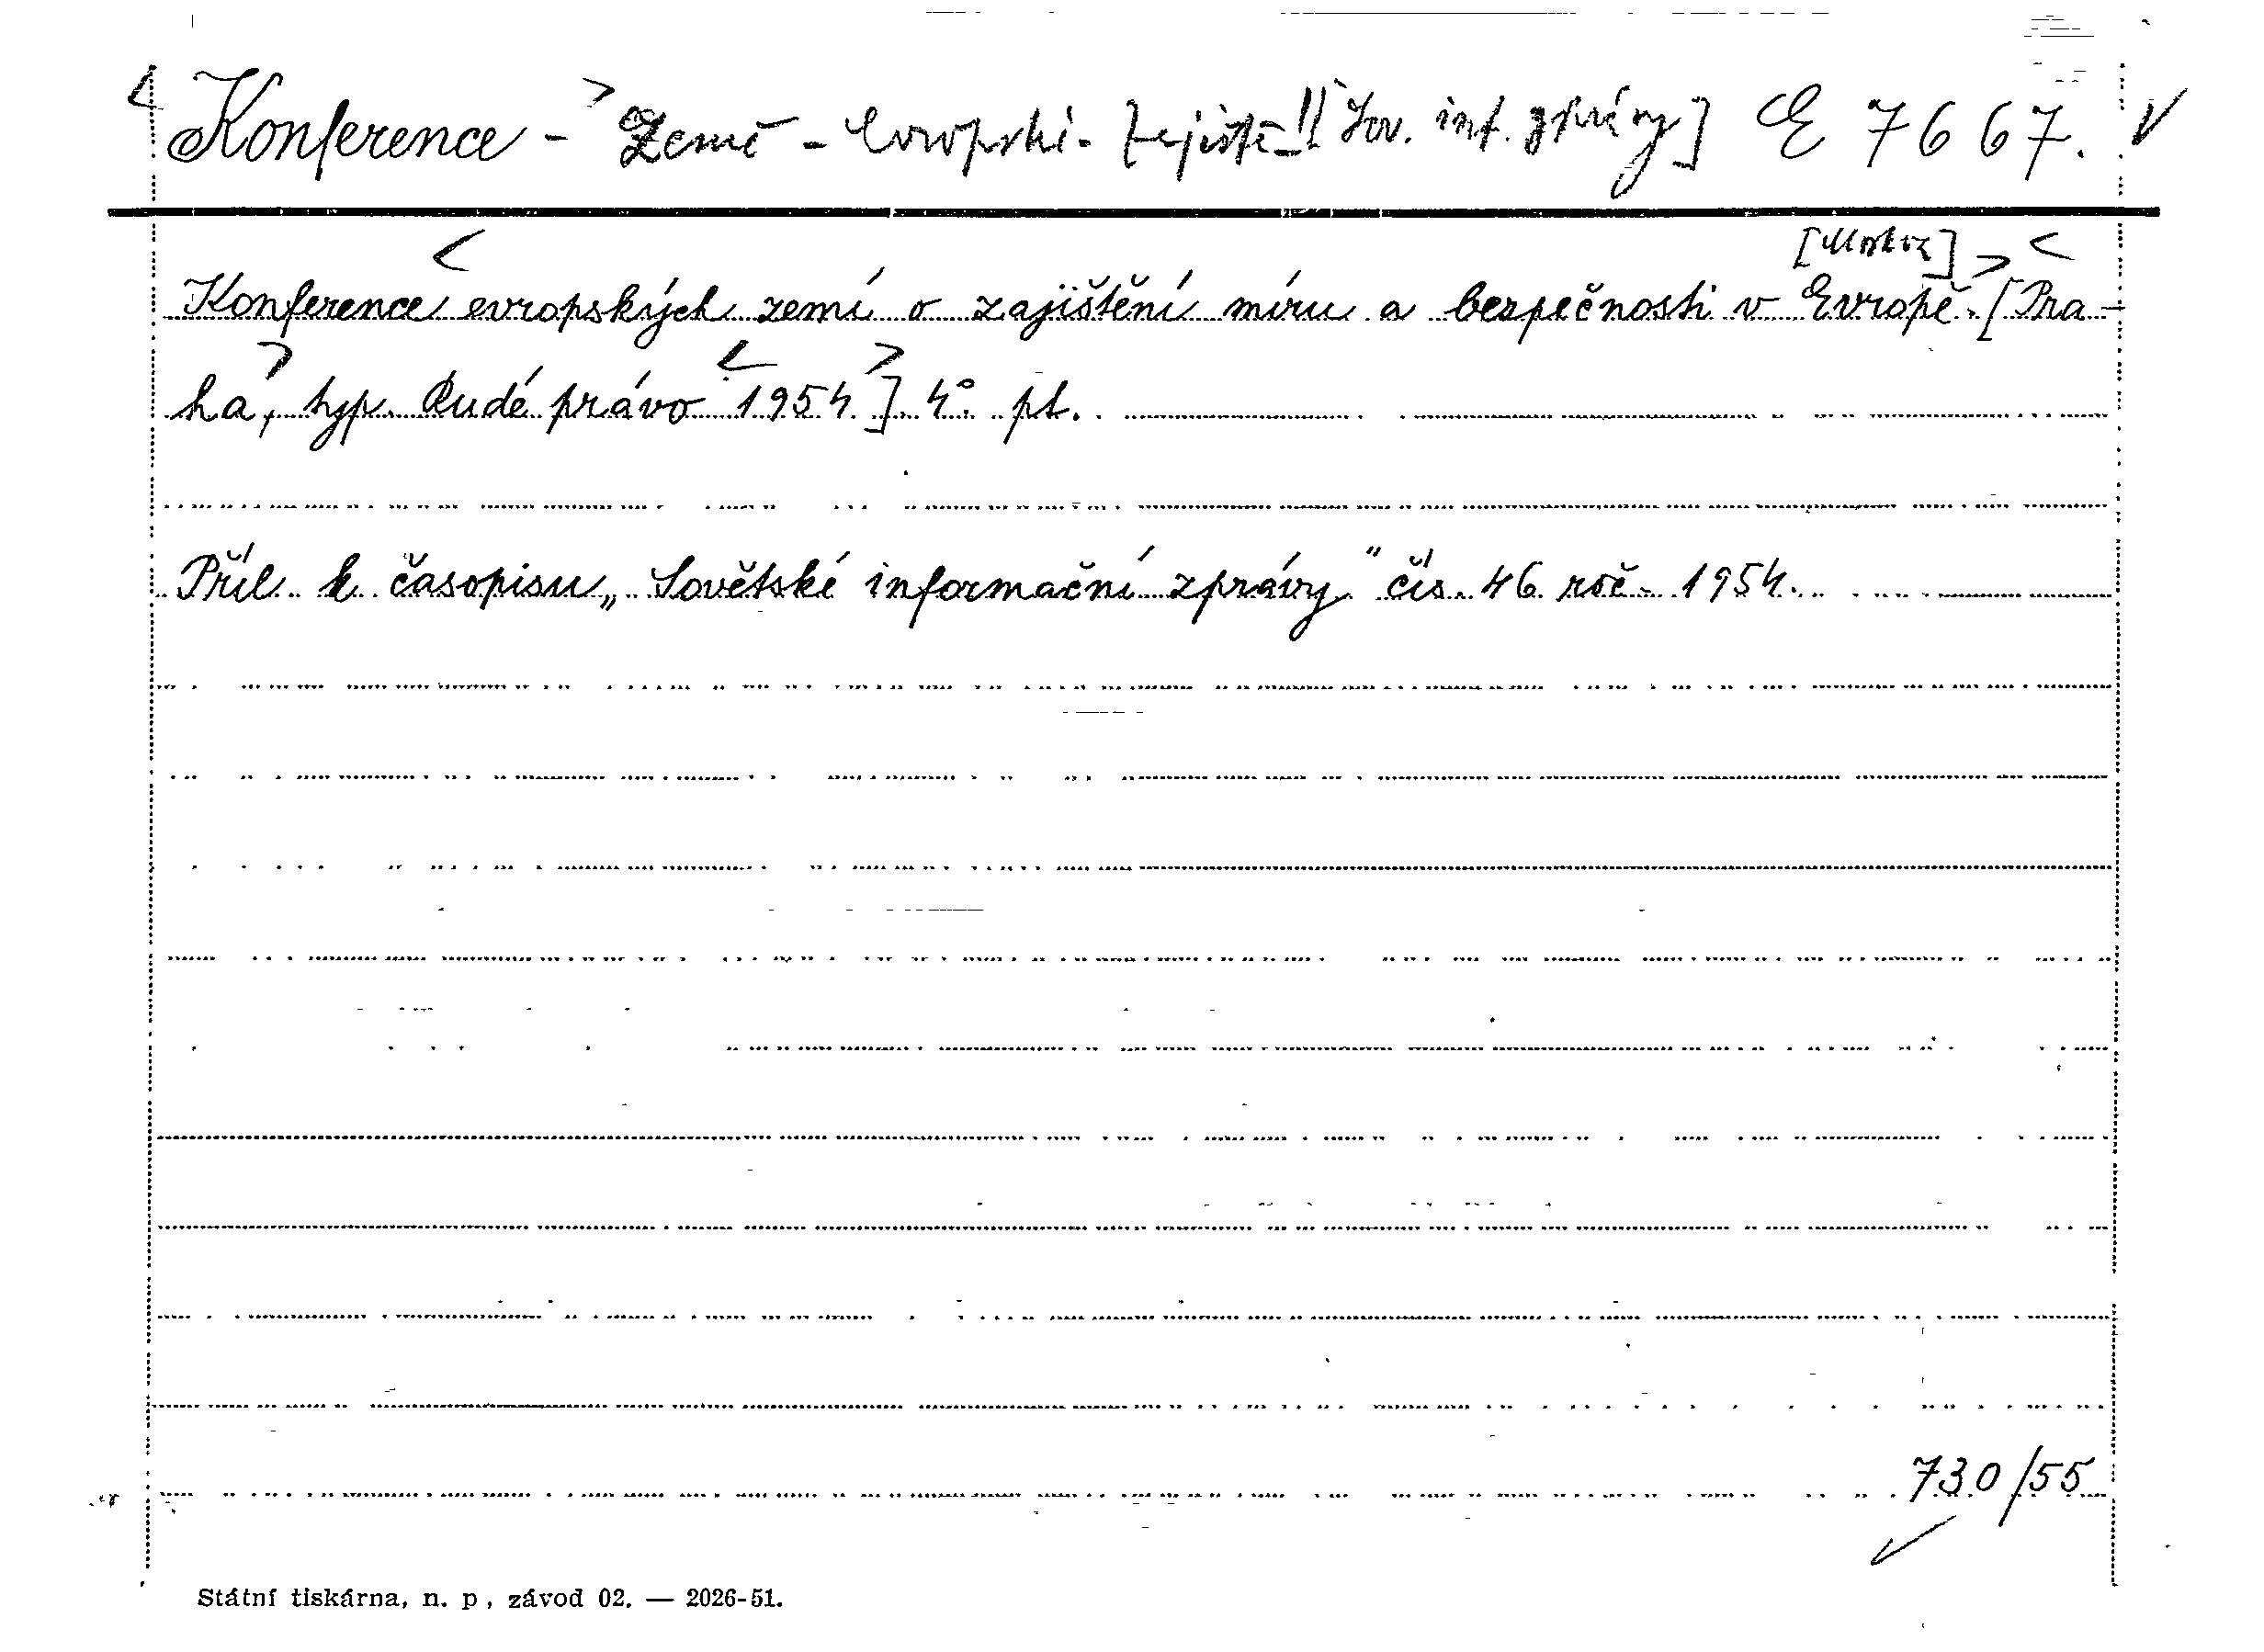 Konference - Země - Evropské - zajiště - [Sov. inf. zprávy] E 7667.
[Moskva]
Konference evropských zemí o zajištění míru a bezpečnosti v Evropě. [Pra-
ha, typ. Rudé právo 1954]. 4°. pt.
Příl. k časopisu „Sovětské informační zprávy" čís. 46 roč. 1954.
730/55
Státní tiskárna, n. p., závod 02. — 2026-51.